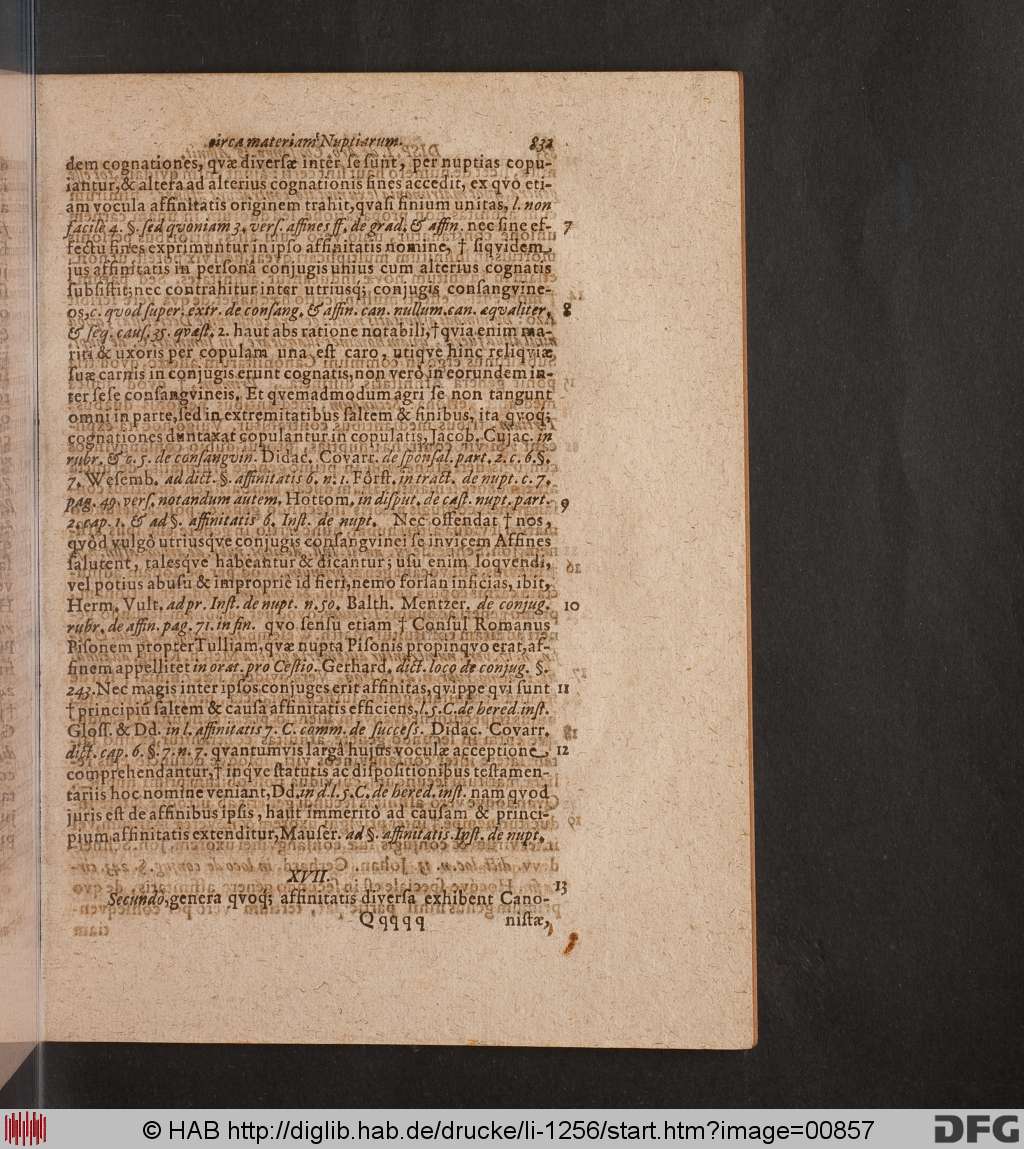 circa materiam Nuptiarum. 831
dem cognationes, qvæ diversæ inter se sunt, per nuptias copu-
lantur, & altera ad alterius cognationis fines accedit, ex qvo eti-
am vocula affinitatis originem trahit, qvasi finium unitas, l. non
facile 4. §. sed qvoniam 3. vers. affines ff. de grad. & affin. nec sine ef- 7
fectu fines exprimuntur in ipso affinitatis nomine, † siqvidem
jus affinitatis in personâ conjugis unius cum alterius cognatis
subsistit; nec contrahitur inter utriusq; conjugis consangvine-
os, c. quod super. extr. de consang. & affin. can. nullum. can. æqvaliter, 8
& seq. caus. 35. qvæst. 2. haut abs ratione notabili, † qvia enim ma-
riti & uxoris per copulam una est caro, utiqve hinc reliqviæ
suæ carnis in conjugis erunt cognatis, non verò in eorundem in-
ter sese consangvineis. Et qvemadmodum agri se non tangunt
omni in parte, sed in extremitatibus saltem & finibus, ita qvoq;
cognationes duntaxat copulantur in copulatis, Jacob. Cujac. in
rubr. & c. 5. de consangvin. Didac. Covarr. de sponsal. part. 2. c. 6. §.
7. Wesemb. ad dict. §. affinitatis 6. n. 1. Först. in tract. de nupt. c. 7.
pag. 49. vers. notandum autem, Hottom. in disput. de cast. nupt. part. 9
2. cap. 1. & ad §. affinitatis 6. Inst. de nupt. Nec offendat † nos,
qvòd vulgò utriusqve conjugis consangvinei se invicem Affines
salutent, talesqve habeantur & dicantur; usu enim loqvendi,
vel potius abusu & impropriè id fieri, nemo forsan inficias, ibit,
Herm. Vult. ad pr. Inst. de nupt. n. 50. Balth. Mentzer. de conjug. 10
rubr. de affin. pag. 71. in fin. qvo sensu etiam † Consul Romanus
Pisonem propter Tulliam, qvæ nupta Pisonis propinqvo erat, af-
finem appellitet in orat. pro Cestio. Gerhard. dict. loco de conjug. §.
243. Nec magis inter ipsos conjuges erit affinitas, qvippe qvi sunt 11
† principiũ saltem & causa affinitatis efficiens, l. 5. C. de hered. inst.
Gloss. & Dd. in l. affinitatis 7. C. comm. de success. Didac. Covarr.
dict. cap. 6. §. 7. n. 7. qvantumvis largâ hujus voculæ acceptione 12
comprehendantur, † inqve statutis ac dispositionibus testamen-
tariis hoc nomine veniant, Dd. in d. l. 5. C. de hered. inst. nam qvod
juris est de affinibus ipsis, haut immeritò ad causam & princi-
pium affinitatis extenditur, Mauser. ad §. affinitatis. Inst. de nupt.
XVII. 13
Secundò, genera qvoq; affinitatis diversa exhibent Cano-
Qqqqq nistæ,
© HAB http://diglib.hab.de/drucke/li-1256/start.htm?image=00857
DFG